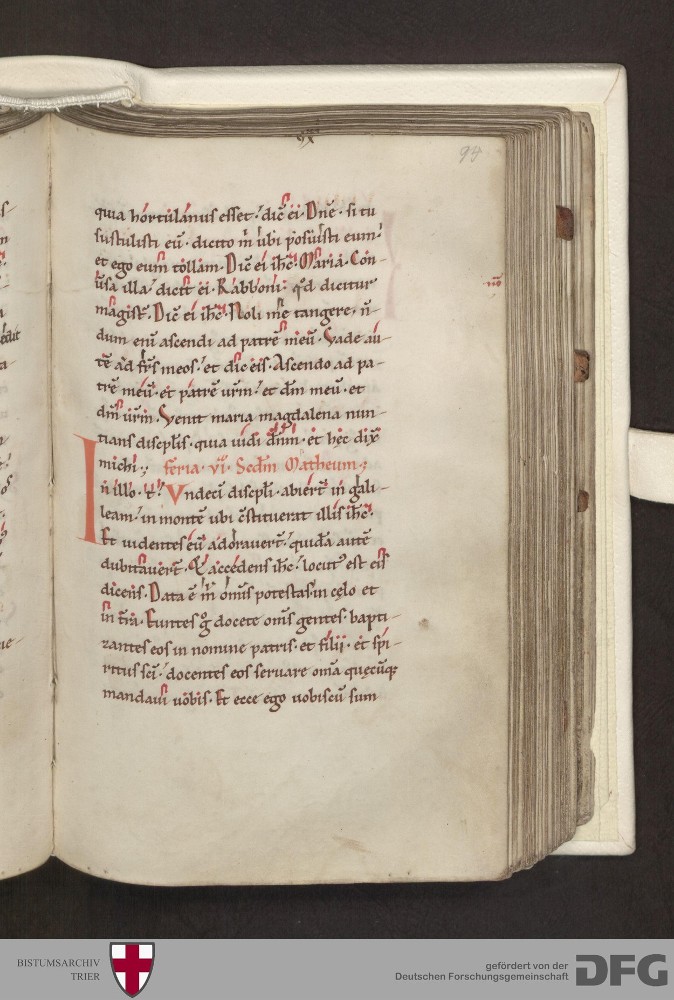 94
quia hortulanus esset. dic̄ ei. Dn̄e. si tu
sustulisti eū. dicito m̄ ubi posuisti eum.
et ego eum tollam. Dic̄ ei ih̄c. Maria. Con-
uersa illa. dicit ei. Rabboni. qd̄ dicitur
magist̄. Dic̄ ei ih̄c. Noli me tangere. n̄-
dum eni ascendi ad patrē meū. Vade au-
tē ad fr̄s meos. et dic eis. Ascendo ad pa-
trē meū. et patrē ur̄m. et dm̄ meū. et
dm̄ ur̄m. Venit maria magdalena nun-
tians discipl̄is. quia uidi dn̄m. et hęc dix̄
michi. feria. vi. Sedm̄ Matheum.
In illo. t̄. Vndeci discipl̄i. abiert̄ in gali-
leam. in montē ubi c̄stituerat illis ih̄c.
Et uidentes eū adorauert̄. quidā autē
dubitauert̄. Et accedens ih̄c. locut᷒ est eis
dicens. Data ē m̄ omīs potestas in cęlo et
in t̄ra. Euntes g̊ docete om̄s gentes. bapti-
zantes eos in nomine patris. et filii. et spi-
ritus sc̄i. docentes eos seruare om̄a quęcūq;
mandaui uobis. Et ecce ego uobiscū sum
BISTUMSARCHIV
TRIER
gefördert von der
Deutschen Forschungsgemeinschaft
DFG